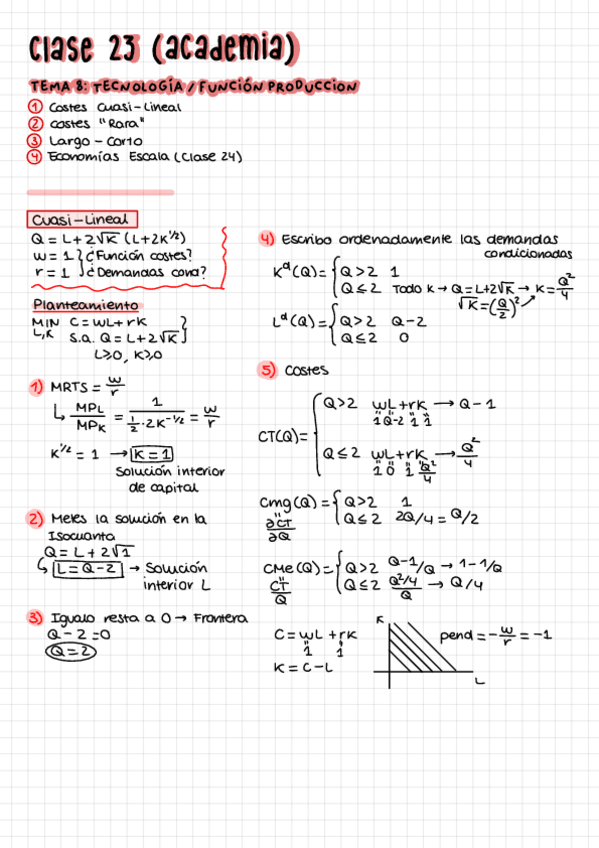 Clase 23 (academia)
TEMA 8: TECNOLOGÍA / FUNCIÓN PRODUCCION
① Costes Cuasi-Lineal
② costes "Rara"
③ Largo - Corto
④ Economías Escala (Clase 24)
Cuasi-Lineal
Q = L+2√K (L+2K^1/2)
w = 1 } ¿Función costes?
r = 1 } ¿Demandas cond?
Planteamiento
MIN L,K C = wL + rK
s.a. Q = L+2√K
L≥0, K≥0
1) MRTS = w/r
↳ MPL/MPK = 1/(1/2·2K^-1/2) = w/r
K^1/2 = 1 → K = 1
Solución interior
de capital
2) Metes la solución en la
Isocuanta
Q = L + 2√1
↳ L = Q-2 → Solución
interior L
3) Igualo resta a 0 → Frontera
Q - 2 = 0
Q = 2
4) Escribo ordenadamente las demandas
condicionadas
K^d(Q) = { Q>2 1
Q≤2 Todo K → Q = L+2√K → K = Q²/4
√K = (Q/2)²
L^d(Q) = { Q>2 Q-2
Q≤2 0
5) Costes
CT(Q) = { Q>2 wL + rK → Q - 1
1 Q-2 1 1
Q≤2 wL + rK → Q²/4
1 0 1 Q²/4
Cmg(Q) = { Q>2 1
Q≤2 2Q/4 = Q/2
∂CT/∂Q
CMe(Q) = { Q>2 Q-1/Q → 1-1/Q
Q≤2 Q²/4/Q → Q/4
CT/Q
C = wL + rK
1 1
K = C - L
K
pend = -w/r = -1
L